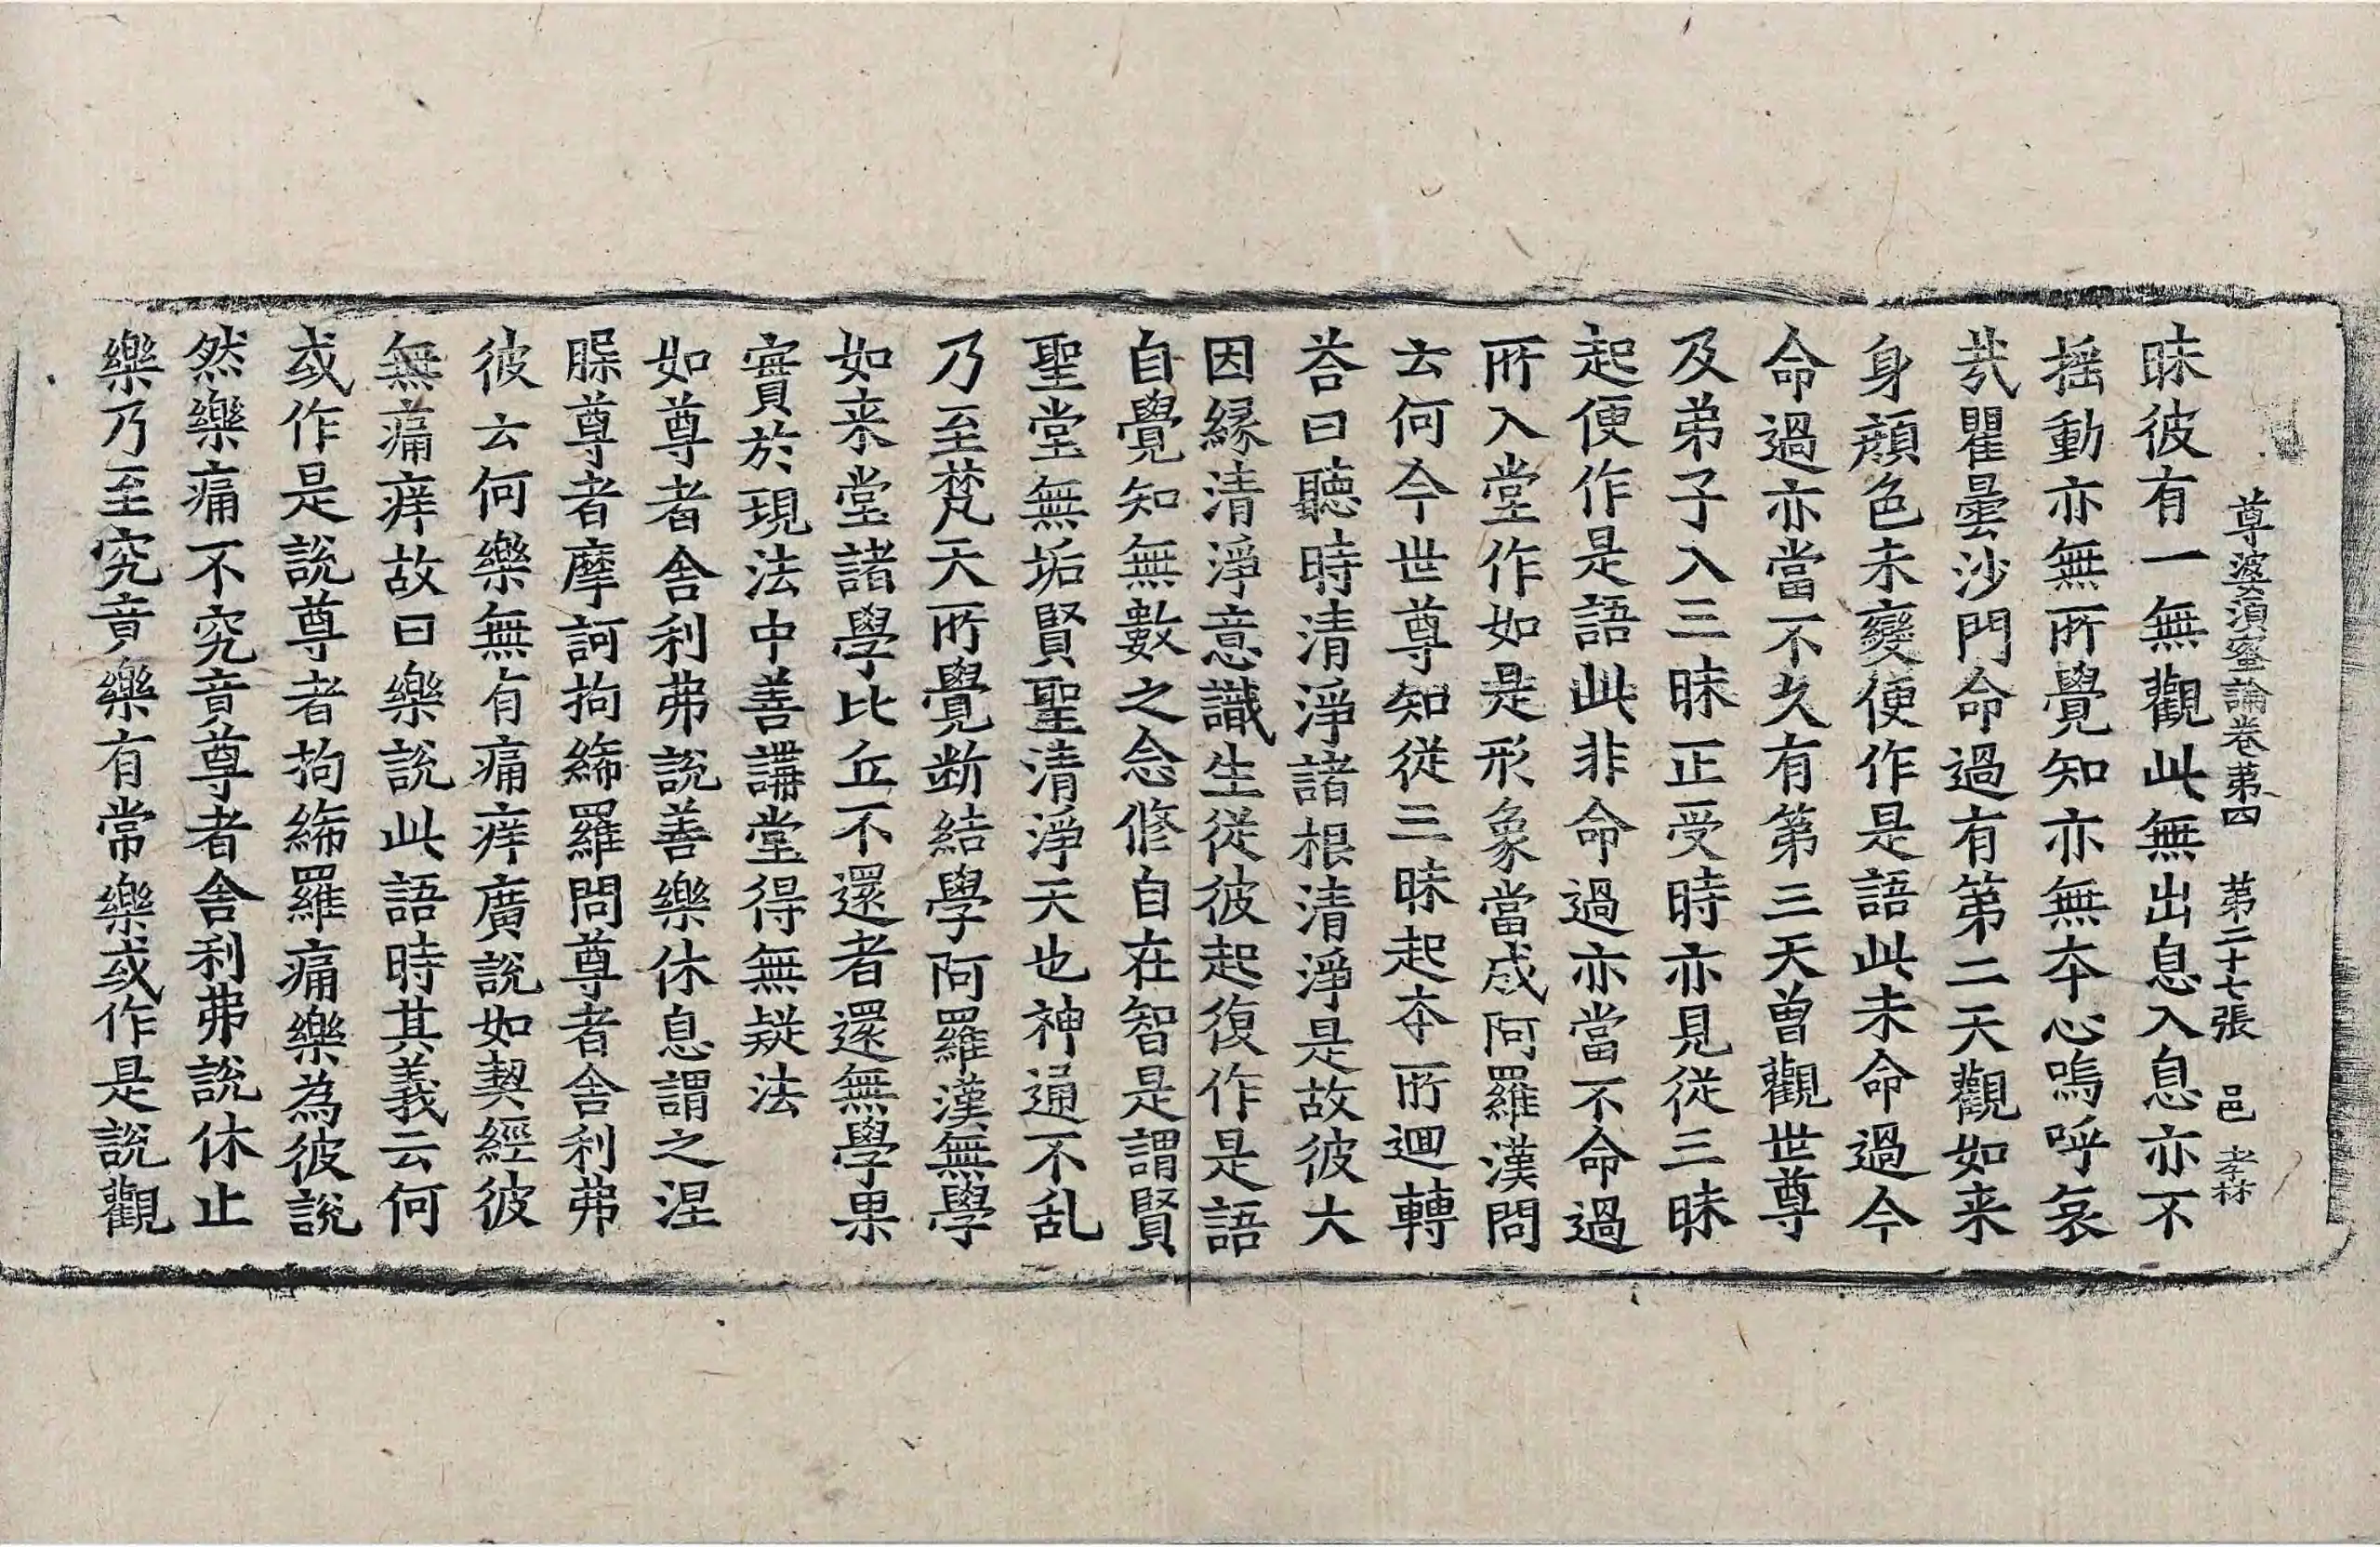 尊婆須蜜論卷苐四　苐二十七張　邑　孝林
昧彼有一無觀此無出息入息亦不
揺動亦無所覺知亦無夲心嗚呼㤅
㢤瞿曇沙門命過有第二天觀如来
身顔色未變便作是語此未命過今
命過亦當不久有第三天曾觀世尊
及弟子入三昧正受時亦見従三昧
起便作是語此非命過亦當不命過
所入堂作如是形象當成阿羅漢問
云何今世尊知従三昧起夲所迴轉
荅曰聽時清淨諸根清淨是故彼大
因縁清淨意識生従彼起復作是語
自覺知無數之念修自在智是謂賢
聖堂無垢賢聖清淨天也神通不乱
乃至梵天所覺断結學阿羅漢無學
如来堂諸學比丘不還者還無學果
實於現法中善講堂得無疑法
如尊者舎利弗說善樂休息謂之涅
𦜮尊者摩訶拘絺羅問尊者舎利弗
彼云何樂無有痛痒廣說如契經彼
無痛痒故曰樂說此語時其義云何
或作是說尊者拘絺羅痛樂為彼說
然樂痛不究竟尊者舎利弗說休止
樂乃至究竟樂有常樂或作是說觀